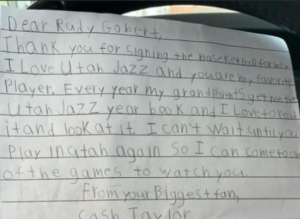 Dear Rudy Gobert,
Thank you for signing the basketball for me.
I Love Utah Jazz and you are my favorite
Player. Every year my grandparents get me the
Utah Jazz year book and I Love to read
it and look at it. I can't wait until you
Play in utah again so I can come to
of the games to watch you.
From your Biggest fan,
Cash Taylor